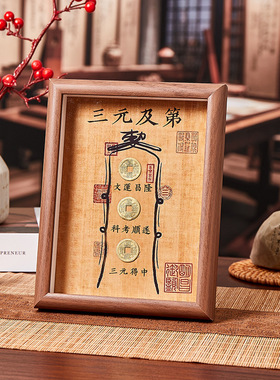 三元及第
大運昌隆
科考順遂
三元得中
PRENEUR